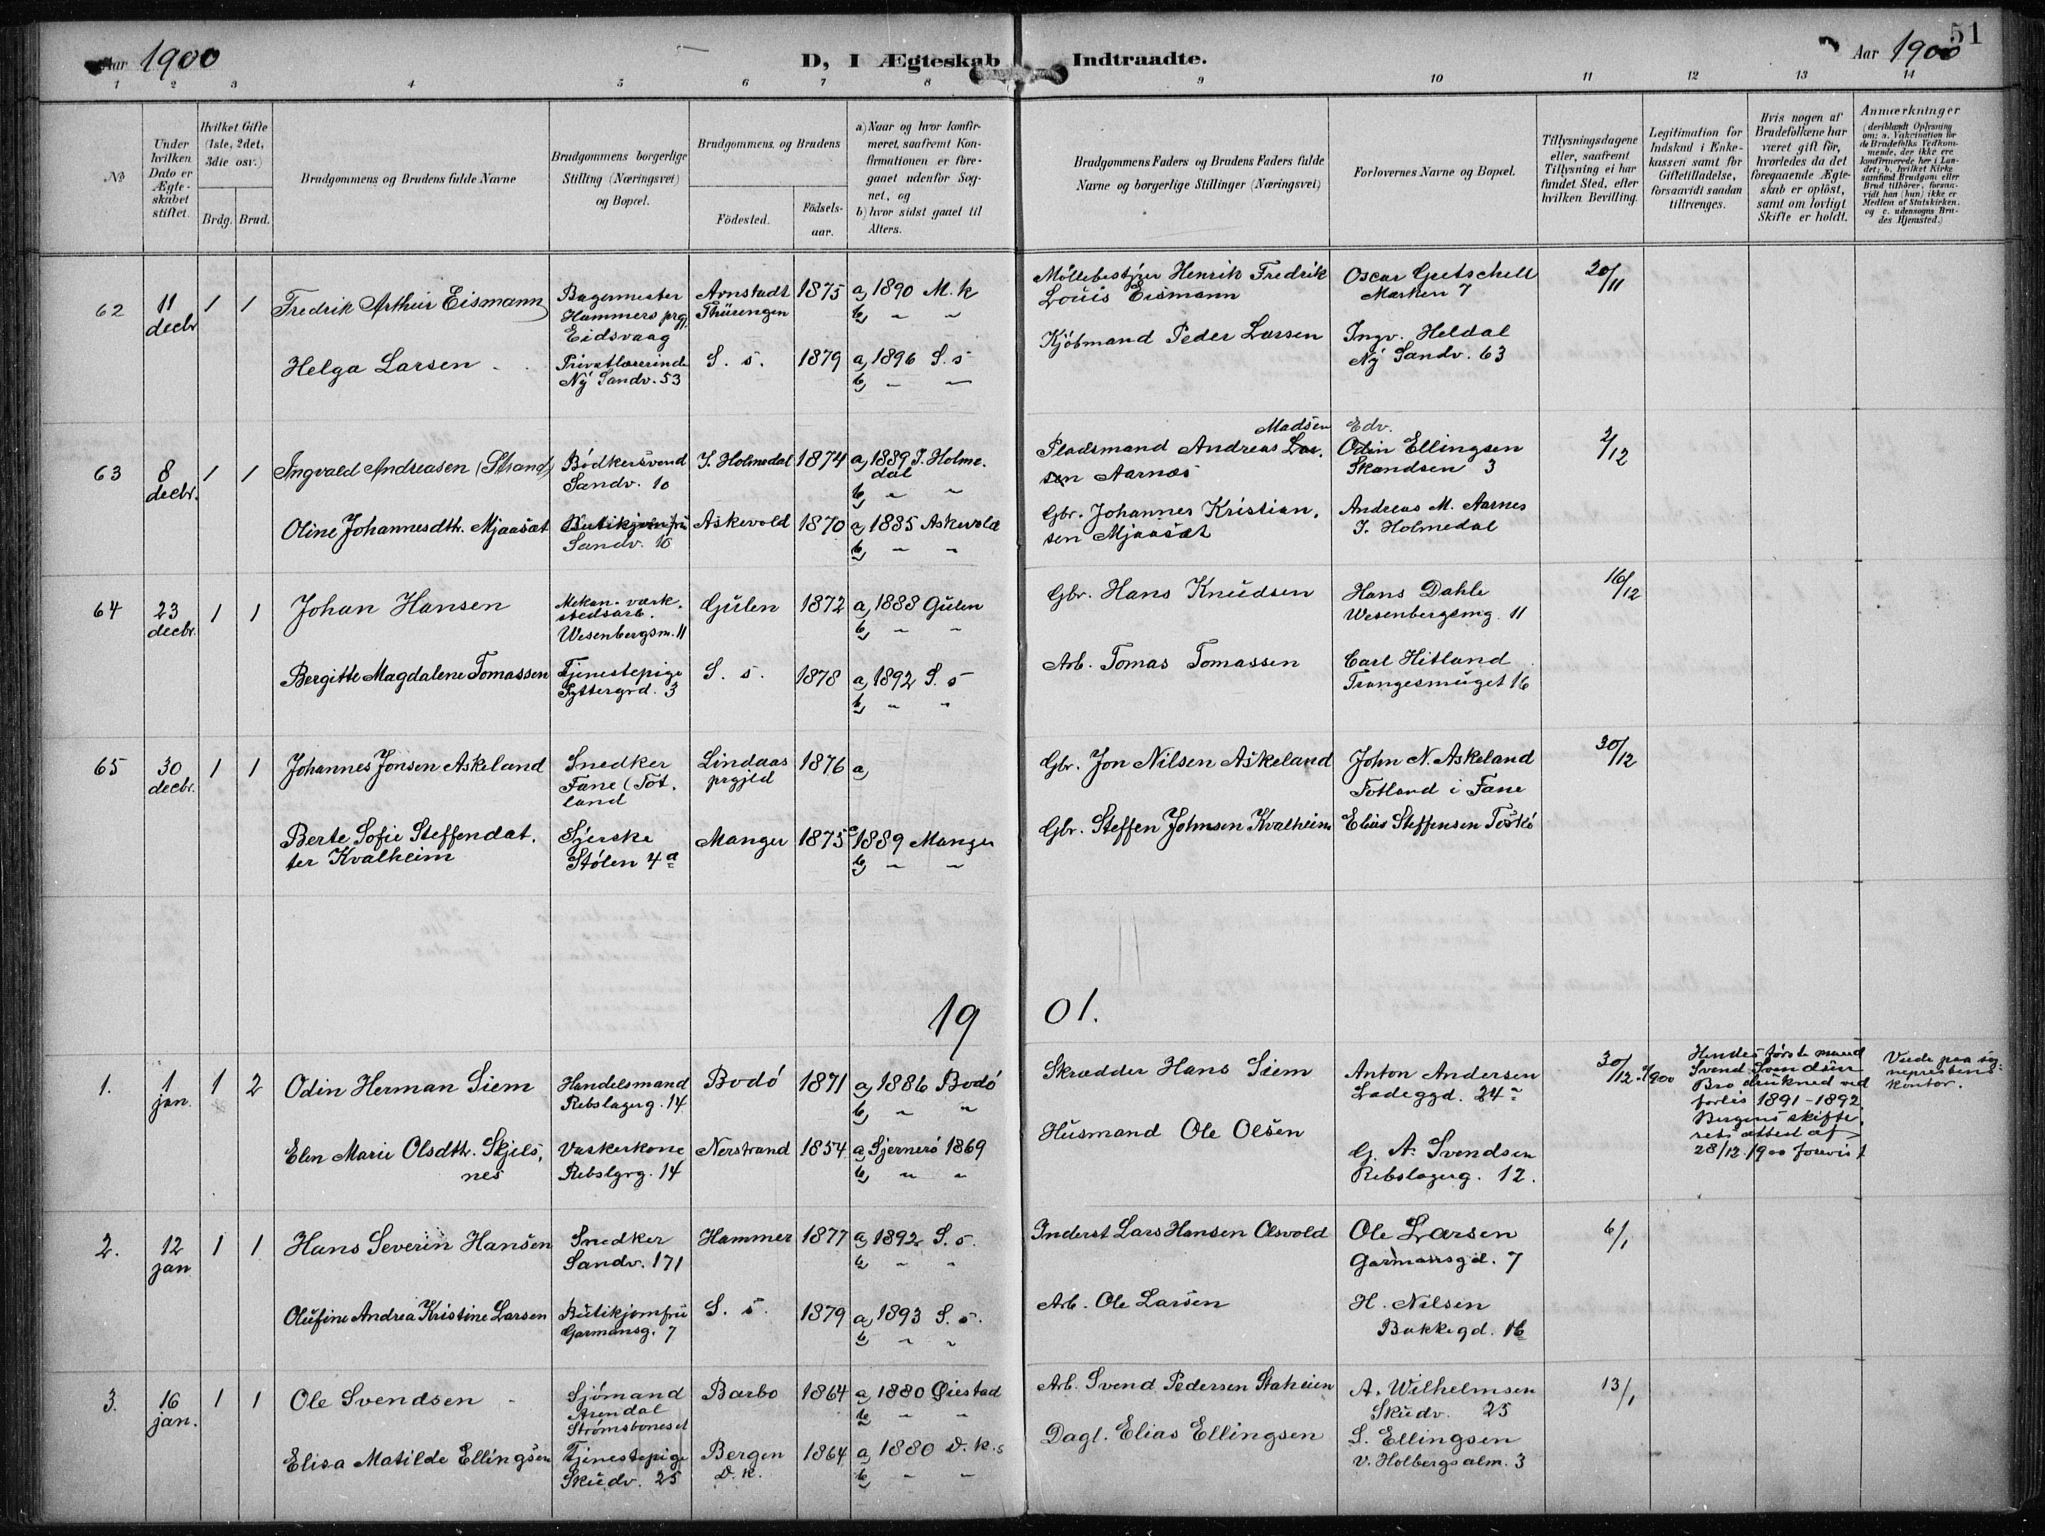 51
Aar 1900
D, I Ægteskab Indtraadte.
Aar 1900
1 2 3 4 5 6 7 8 9 10 11 12 13 14
No
Under hvilken Dato er Ægteskabet stiftet.
Hvilket Gifte (1ste, 2det, 3die osv.)
Brdg. Brud.
Brudgommens og Brudens fulde Navne
Brudgommens borgerlige Stilling (Næringsvei) og Bopæl.
Brudgommens og Brudens
Födested.
Födselsaar.
a) Naar og hvor konfirmeret, saafremt Konfirmationen er foregaaet udenfor Sognet, og
b) hvor sidst gaaet til Alters.
Brudgommens Faders og Brudens Faders fulde Navne og borgerlige Stillinger (Næringsvei)
Forlovernes Navne og Bopæl.
Tillysningsdagene eller, saafremt Tillysning ei har fundet Sted, efter hvilken Bevilling.
Legitimation for Indskud i Enkekassen samt for Giftetilladelse, forsaavidt saadan tiltrænges.
Hvis nogen af Brudefolkene har været gift för, hvorledes da det foregaaende Ægteskab er oplöst, samt om lovligt Skifte er holdt.
Anmærkninger
(deriblandt Oplysning om: a. Vakcination for de Brudefolks Vedkommende, der ikke ere konfirmerede her i Landet; b. hvilket Kirkesamfund Brudgom eller Brud tilhörer, forsaavidt han (hun) ikke er Medlem af Statskirken. og c. udensogns Brudes Hjemsted.)
62 11 decbr 1 1 Fredrik Arthur Eismann
Bagermester Hammers prg. Eidsvaag
Arnstadt Thüringen 1875 a) 1890 M. k
b) " "
Møllebestyrer Henrik Fredrik Louis Eismann
Oscar Gutschell Marken 7
20/11
Helga Larsen
Privatlærerinde Ny Sandv. 53
S. s. 1879 a) 1896 S. s
b) " "
Kjöbmand Peder Larsen
Ingv. Heldal Ny Sandv. 63
63 8 decbr. 1 1 Ingvald Andreasen (Strand)
Bødkersvend Sandv. 10
Y. Holmedal 1874 a) 1889 Y. Holmedal
b) " "
Madsen
Pladsmand Andreas Larsen Aarnæs
Edv.
Odin Ellingsen Skandsen 3
2/12
Oline Johannesdth. Mjaasæt
Butikjomfru Sandv. 10
Askevold 1870 a) 1885 Askevold
b) " "
Gbr. Johannes Kristiansen Mjaasæt
Andreas M. Aarnes Y. Holmedal
64 23 decbr. 1 1 Johan Hansen
Mekan. værkstedsarb. Wesenbergsm. 11
Gulen 1872 a) 1888 Gulen
b) " "
Gbr. Hans Knudsen
Hans Dahle Wesenbergsmg. 11
16/12
Bergitte Magdalene Tomassen
Tjenestepige Yttergrd. 3
S. s. 1878 a) 1892 S. s
b) " "
Arb. Tomas Tomassen
Carl Hitland Trangesmuget 16
65 30 decbr. 1 1 Johannes Jonsen Askeland
Snedker Fane (Totland
Lindaas prgjld 1876 a)
Gbr. Jon Nilsen Askeland
John N. Askeland Totland i Fane
30/12
Berte Sofie Steffendatter Kvalheim
Syerske Stølen 4 a
Manger 1875 a) 1889 Manger
b) " "
Gbr. Steffen Johnsen Kvalheim
Elias Steffensen Toskö
19 01.
1. 1 jan. 1 2 Odin Herman Siem
Handelsmand Rebslagerg. 14
Bodö 1871 a) 1886 Bodö
b) " "
Skrædder Hans Siem
Anton Andersen Ladeggd. 24 a
30/12 1900
Hendes første mand Svend Svendsen Bro druknede ved forlis 1891-1892 Bergens skifterets attest af 28/12 1900 forevist
Viede paa sogneprestens kontor.
Elen Marie Olsdth. Skjelsnes
Vaskerkone Rebslgrg. 14
Nerstrand 1854 a) Sjernerö 1869
b) " "
Husmand Ole Olsen
G. A. Svendsen Rebslagerg. 12.
2. 12 jan 1 1 Hans Severin Hansen
Snedker Sandv. 171
Hammer 1877 a) 1892 S. s.
b) " "
Inderst Lars Hansen Olsvold
Ole Larsen Garmansgd. 7
6/1
Olufine Andrea Kristine Larsen
Butikjomfru Garmansg. 7
S. s. 1879 a) 1893 S. s.
b) " "
Arb. Ole Larsen
H. Nilsen Bakkegd. 16
3. 16 jan. 1 1 Ole Svendsen
Sjömand Arendal Strømsboneset
Barbo 1864 a) 1880 Øiestad
b) " "
Arb. Svend Pedersen Staheien
A. Wilhelmsen Skudv. 25
13/1
Elisa Matilde Ellingsen
Tjenestepige Skudv. 25
Bergen D. k. 1864 a) 1880 D. k. s
b) " "
Dagl. Elias Ellingsen
S. Ellingsen v. Holbergsalm. 3